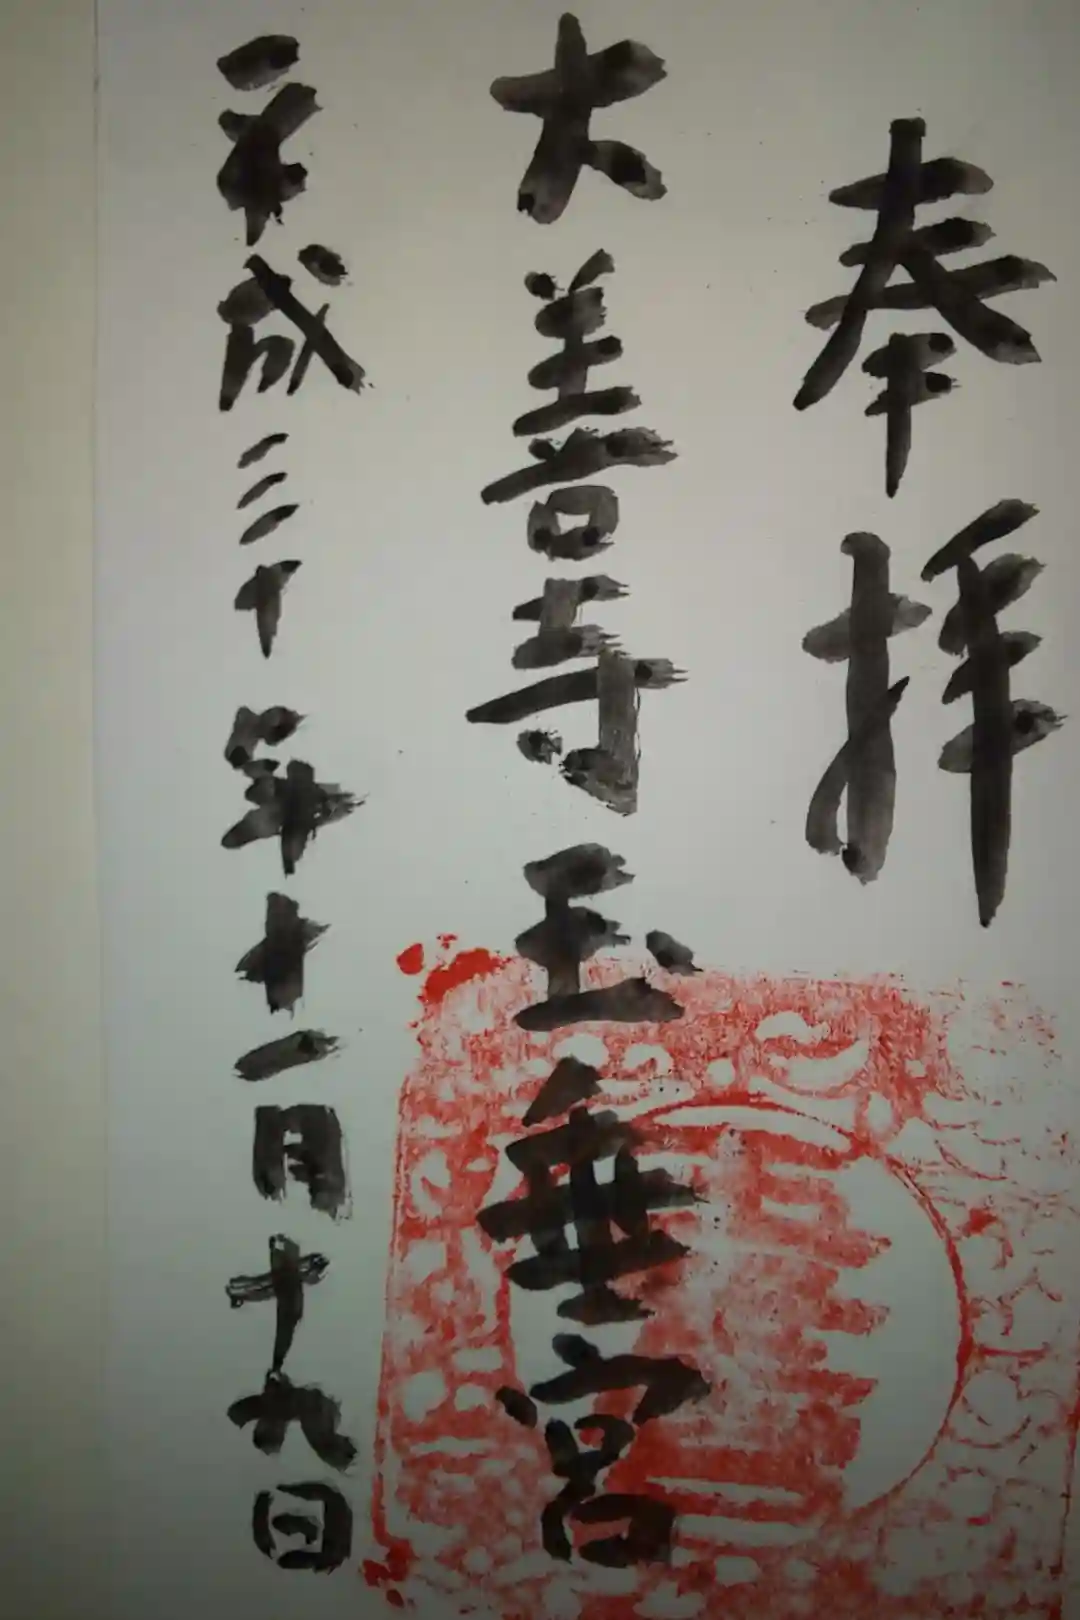 奉拝
大善寺玉垂宮
平成三十年十一月十九日